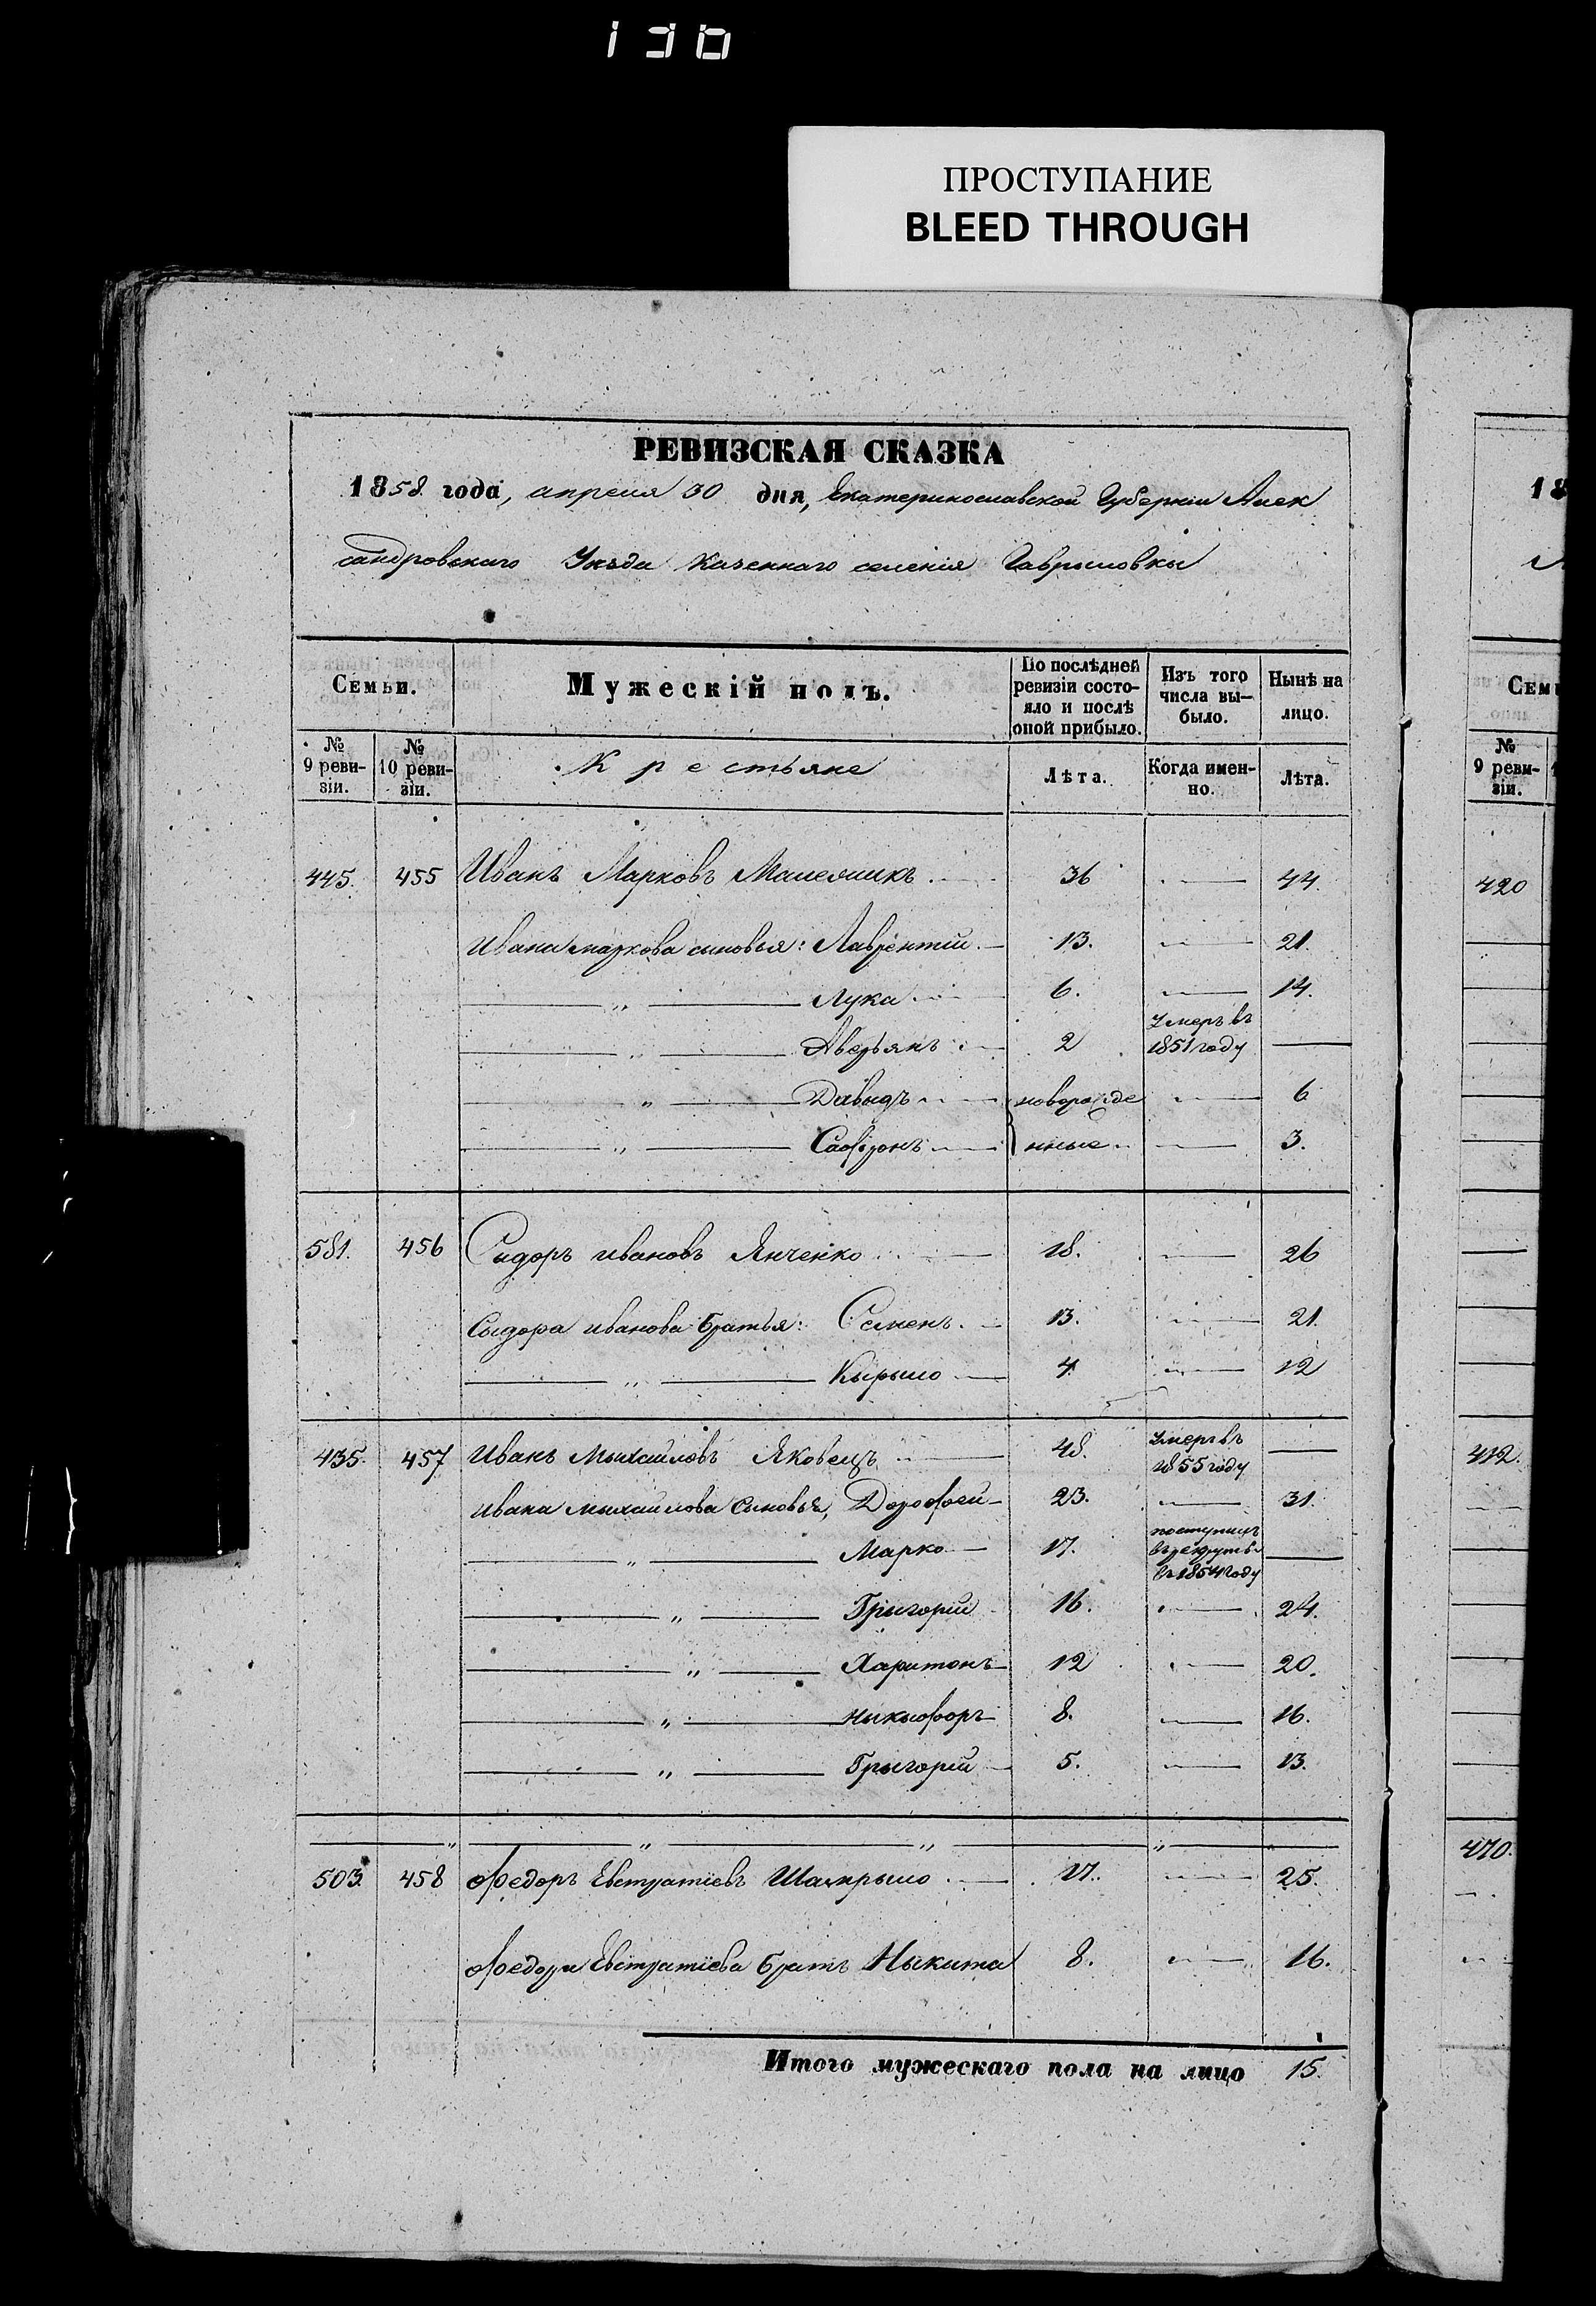 130
ПРОСТУПАНИЕ
BLEED THROUGH
РЕВИЗСКАЯ СКАЗКА
1858 года, апреля 30 дня, Екатеринославской Губерніи Алек
сандровскаго Уезда Казеннаго селенія Гаврыловкы
Семьи.
Мужескій полъ.
По послѣдней ревизіи состояло и послѣ оной прибыло.
Изъ того числа вы-было.
Нынѣ на лицо.
№ 9 реви-зіи.
№ 10 реви-зіи.
Крестьяне
Лѣта.
Когда имен-но.
Лѣта.
445. 455 Иванъ Марковъ 36 — 44.
Ивана маркова сыновья: Лаврентій — 13. — 21.
— „ — Лука 6. — 14.
— „ — Аверьянъ 2 Умеръ въ 1851 году —
— „ — Давыдъ новорожде — 6
— „ — Сафронъ нные — 3.
581. 456 Сидоръ ивановъ Янченко — 18. — 26
Сыдора иванова братья: Семенъ. — 13. — 21.
— „ — Кырыло — 4 — 12
435. 457 Иванъ Мыхайловъ Яковецъ — 48. Умеръ въ 1855 году —
Ивана мыхайлова Сыновья, Дорофей — 23. — 31.
— „ — Марко — 17. поступилъ въ рекруты въ 1854 году —
— „ — Грыгорій 16. — 24.
— „ — Харитонъ — 12 — 20.
— „ — Ныкыфоръ 8. — 16.
— „ — Грыгорій — 5. — 13.
— „ — „ — „ — „ —
503. 458 Федоръ Евстратіевъ — 17. — 25.
Федора Евстратіева братъ Ныкита 8. — 16.
Итого мужескаго пола на лицо 15.
18
Семь
№ 9 реви-зіи.
420
412.
470.